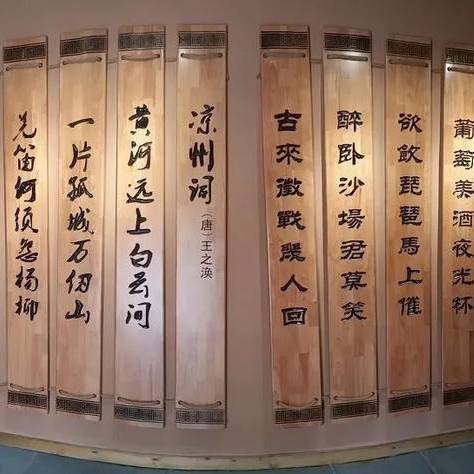 葡萄美酒夜光杯
欲飲琵琶馬上催
醉卧沙場君莫笑
古來徵戰幾人回
凉州词
（唐）王之涣
黄河远上白云间
一片孤城万仞山
羌笛何须怨杨柳